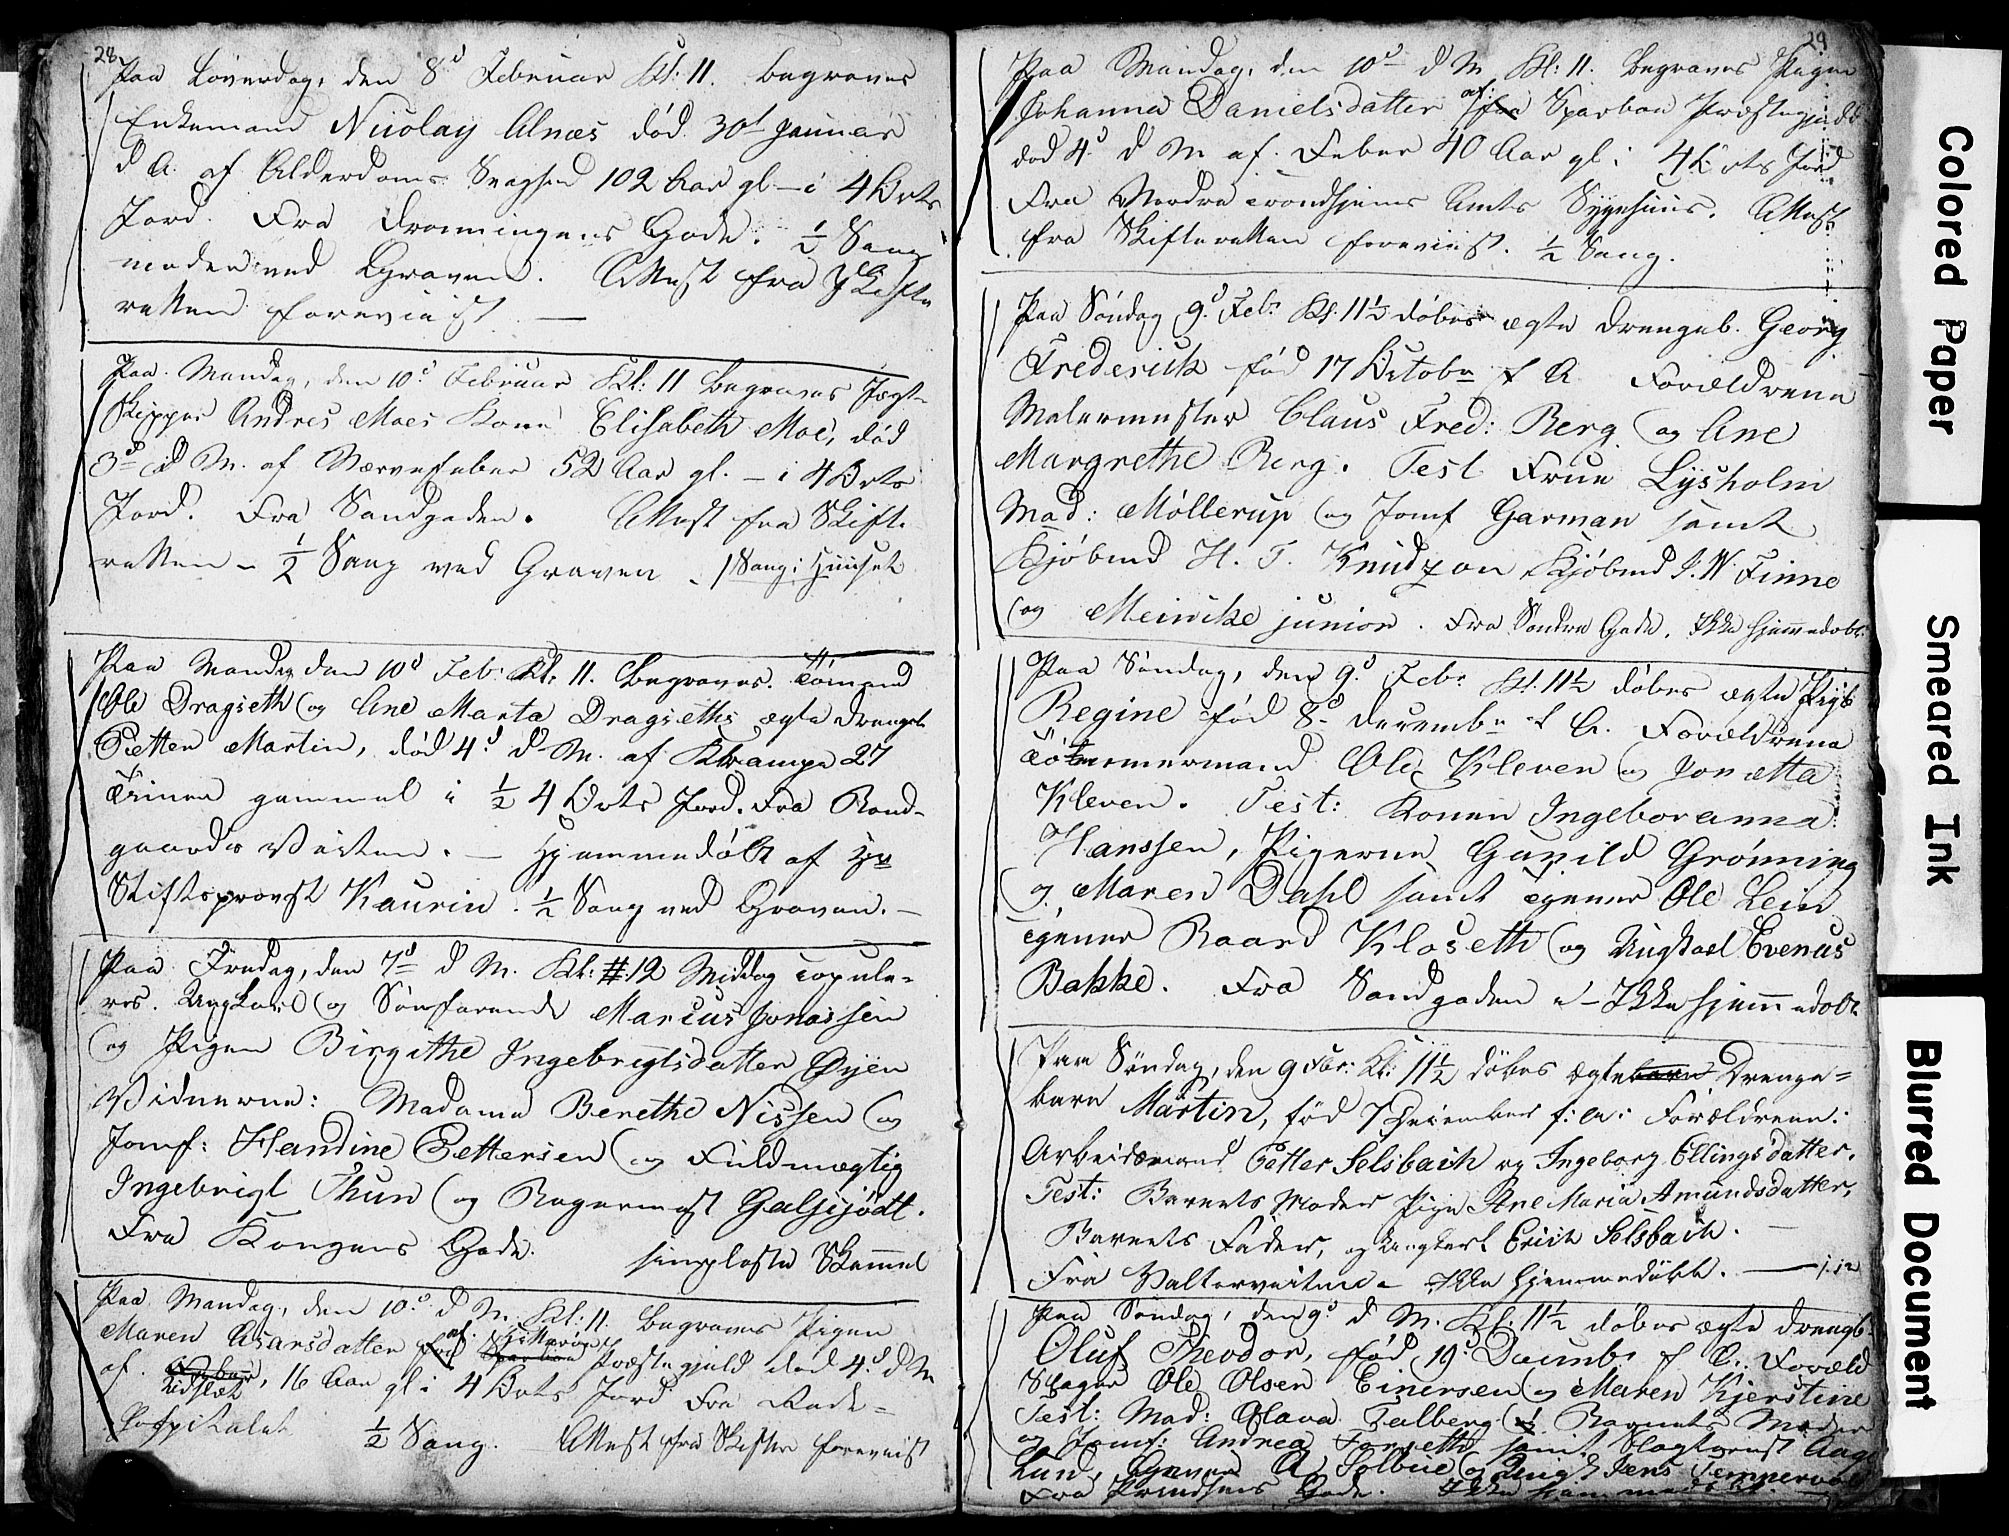 28.
Paa Løverdag, den 8d Februar Kl: 11. begraves
Enkemand Nicolay Alnæs død 30t Januar
d A. af Alderdoms Svaghed 102 Aar gl – i 4 Orts
Jord. Fra Dronningens Gade. ½ Sang
meden ved Graven. Attest fra Skifte
retten foreviist. —
Paa Mandag, den 10d Februar Kl: 11 begraves Jægt-
skipper Andres Moes Kone Elisabeth Moe, død
3d d M. af Nervefeber 52 Aar gl. – i 4 Orts
Jord. Fra Sandgaden. Attest fra Skifte
retten – ½ Sang ved Graven – 1 Sang i Huuset
Paa Mandag den 10d Feb: Kl: 11. begraves. Tømmd
Ole Dragseth og Ane Marta Dragseths ægte drengeb.
Petter Martin, død 4d d M. af Krampe 27
Timer gammel i ½ 4 Orts Jord. Fra Rand-
gaards Veiten. – Hjemmedøbt af Hr
Stiftsprovst Kaurin. ½ Sang ved Graven. –
Paa Fredag, den 7d d M. Kl: 12 Middag copule-
res. Ungkarl og Søefarende Marcus Jonassen
og Pigen Birgithe Ingebrigtsdatter Øyen
Vidnerne: Madame Berethe Nissen og
Jomf: Handine Pettersen og Fuldmægtig
Ingebrigt Thun og Bagermest Galschjødt.
Fra Kongens Gade. simpleste Skammel
Paa Mandag, den 10d d M. Kl: 11. begraves Pigen
Maren Aransdatter fra af Sparboe Præstegjeld død 4d d M
af , 16 Aar gl i 4 Orts Jord Fra Rade-
Hospitalet ½ Sang. Attest fra Skiften foreviist
29
Paa Mandag, den 10d d M Kl: 11. begraves Pigen
Johanna Danielsdatter af fra Sparboe Præstegjeld
død 4d d M af Feber 40 Aar gl i 4 Orts Jord
Fra Nordre Trondhjems Amts Sygehuus. Attest
fra Skifteretten foreviist. ½ Sang.
Paa Søndag 9d Feb: Kl. 11½ døbes ægte drengeb. Georg
Frederick født 17 Octobr f A Forældrene
Malermester Claus Fred: Berg og Ane
Margrethe Berg. Test Frue Lysholm
Mad: Møllerup og Jomf Garman samt
Kjøbmd H. T. Knudzon Kjøbmd J. W. Finne
og Meincke junior. Fra Søndre Gade. Ikke hjemmedøbt.
Paa Søndag, den 9d Febr Kl. 11½ døbes ægte Pigeb
Regine født 8d Decembr f A. Forældrene
Tømmermand Ole Kleven og Jonætta
Kleven. Test: Konen Ingeboranna
Hanssen, Pigerne Gunild Grønning
og Maren Dahl samt Tjener Ole Lein
Tjener Baard Kloseth og Ungkarl Evenus
Bakke. Fra Sandgaden – Ikke hjemmedøbt
Paa Søndag, den 9 Febr: Kl: 11½ døbes ægte barn Drenge-
barn Martin, født 7 December f: A: Forældrene:
Arbeidsmand Petter Selsbach og Ingeborg Ellingsdatter.
Test: Barnets Moder Pige Ane Maria Amundsdatter,
Barnets Fader, og Ungkarl Erich Selsbach. —
Fra Valterveiten – Ikke hjemmedøbt. —
Paa Søndag, den 9d d M. Kl. 11½ døbes ægte drengb.
Oluf Theodor, født 19d Decemb: f A. Foræld
Slager Ole Olsen Einersen og Maren Kjerstine
Test: Mad: Olava Falberg Barnets Moder
og Jomf: Andrea samt Slagtersvend Aage
Lund, Tjener A Solbue og Jens Tempervold
Fra Prindsens Gade. Ikke hjemmedøbt.
Colored Paper
Smeared Ink
Blurred Document